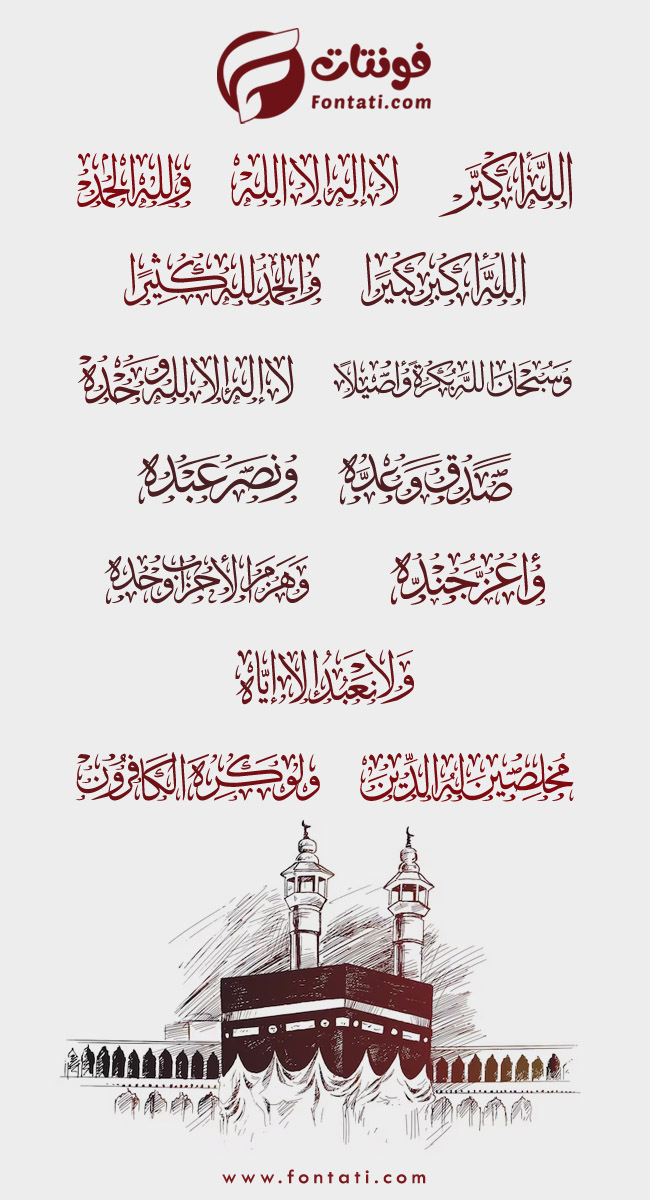 فونتات
Fontati.com
اللَّهُ أَكْبَرُ لا إله إلا الله ولله الحمد
اللهُ أكبر كَبيرًا والحمدُ لله كَثِيرًا
وَسُبْحَانَ اللهِ بُكْرَةً وَأَصِيلاً لا إله إلا الله وَحْدَه
صَدَقَ وَعْدَه ونَصَرَ عَبْدَه
وأعَزَّ جُنْدَه وَهَزَمَ الأحزاب وحْدَه
وَلا نَعْبُدُ إلا إيَّاه
مُخْلِصِينَ لَهُ الدِّينَ ولَوْ كَرِهَ الكَافِرُون
www.fontati.com